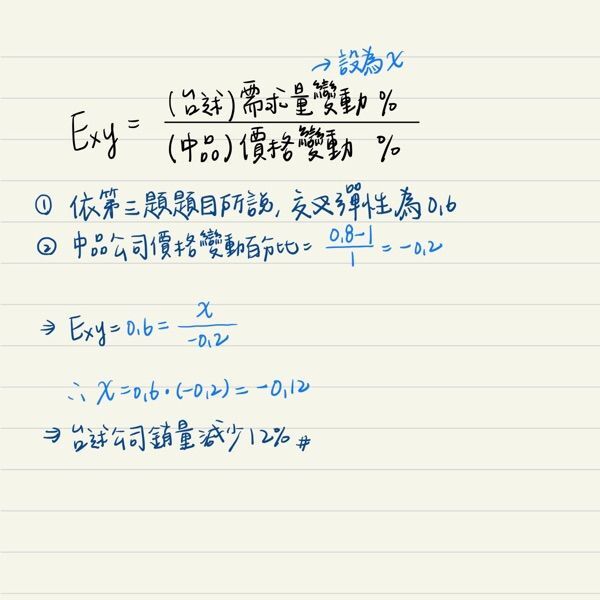 →設為x
Exy = (台述)需求量變動 % / (中品)價格變動 %
① 依第三題題目所說, 交叉彈性為0.6
② 中品公司價格變動百分比= 0.8-1 / 1 = -0.2
⇒ Exy = 0.6 = x / -0.2
∴ x = 0.6 · (-0.2) = -0.12
⇒ 台述公司銷量減少12% #